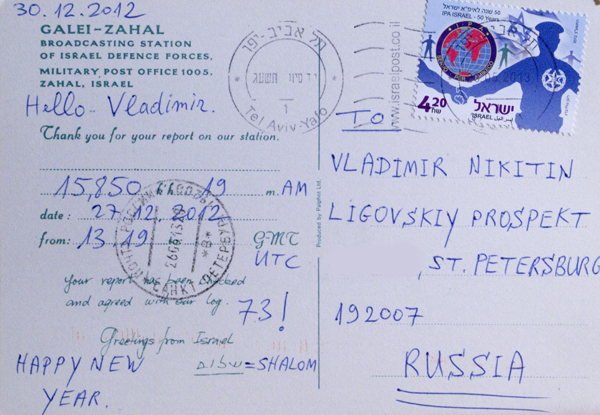 30.12.2012
GALEI-ZAHAL
BROADCASTING STATION
OF ISRAEL DEFENCE FORCES,
MILITARY POST OFFICE 1005,
ZAHAL, ISRAEL
Hello Vladimir.
Thank you for your report on our station.
15,850 19 m. AM
date: 27.12.2012
from: 13 19 GMT
UTC
Your report has been checked
and agreed with our log.
73!
Greetings from Israel
HAPPY NEW
YEAR.
שלום = SHALOM
תל אביב-יפו
1
Tel Aviv-Yafo
www.israelpost.co.il
Produced by Palphot Ltd.
50 שנה לאיפ"א ישראל
IPA ISRAEL - 50 Years
4.20
ישראל
ISRAEL
TO
VLADIMIR NIKITIN
LIGOVSKIY PROSPEKT
, ST. PETERSBURG
192007
RUSSIA